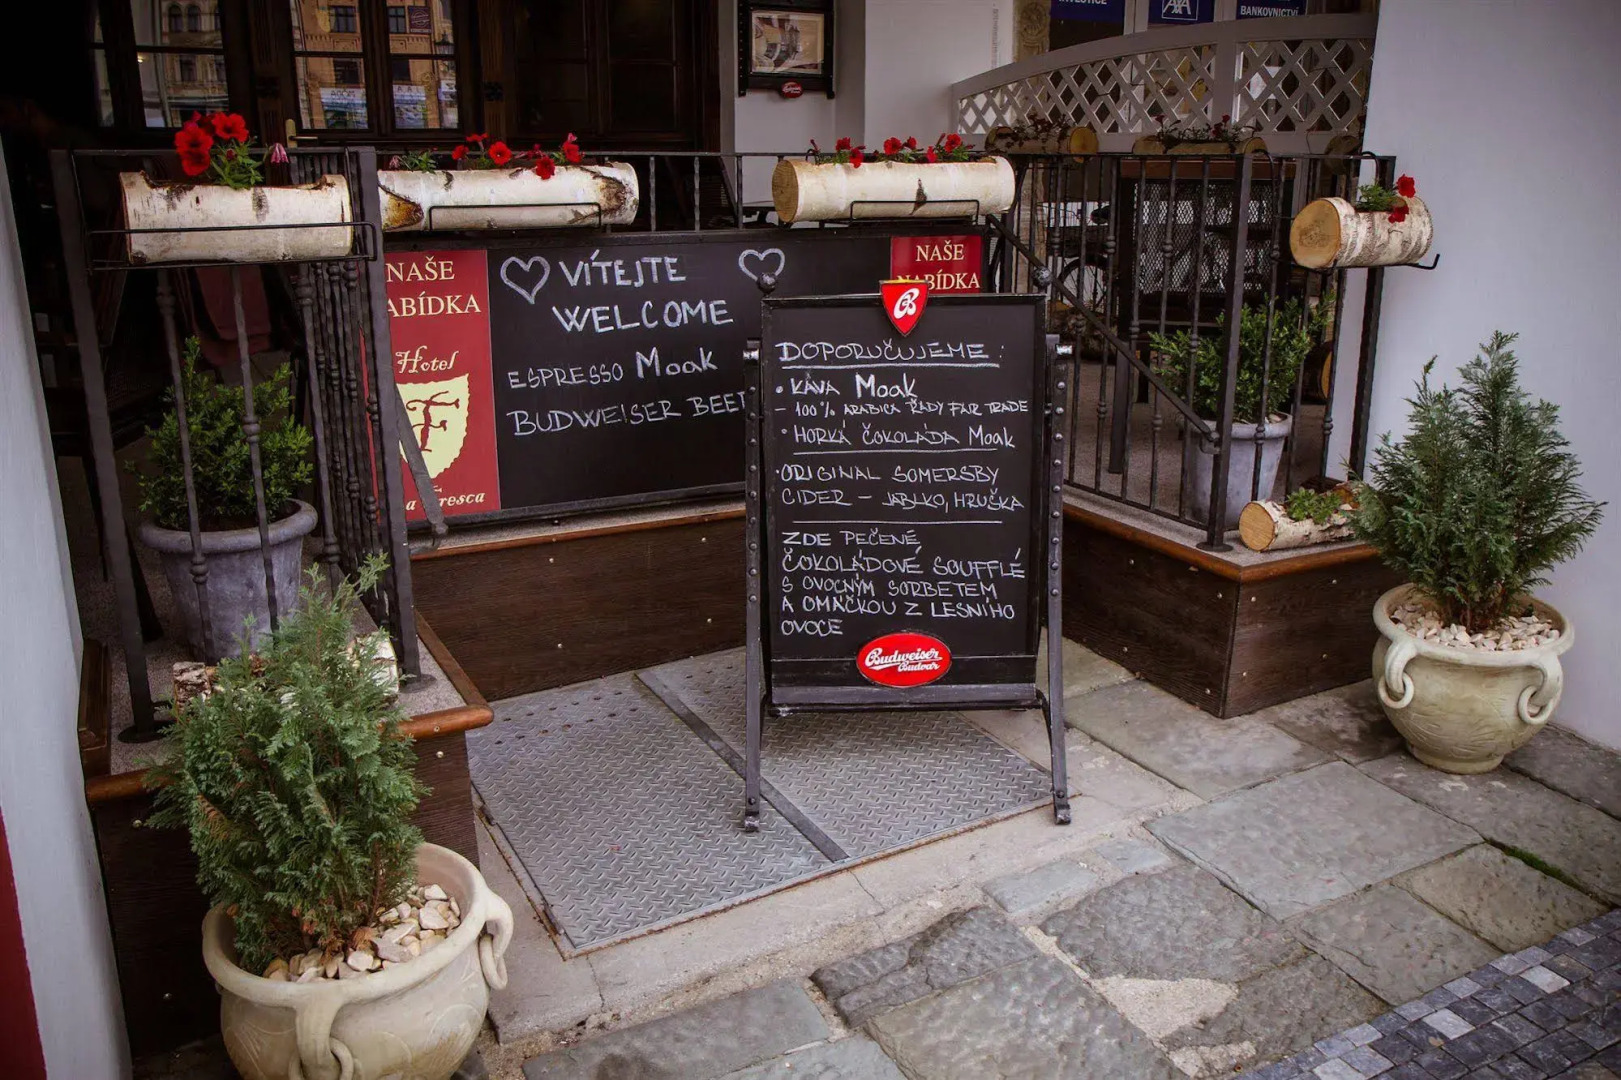 AXA
BANKOVNICTVÍ
NAŠE
ABÍDKA
Hotel
a Fresca
VÍTEJTE
WELCOME
ESPRESSO Moak
BUDWEISER BEE
NAŠE
NABÍDKA
B
DOPORUČUJEME:
• KÁVA Moak
- 100% ARABICA ŘADY FAIR TRADE
• HORKÁ ČOKOLÁDA Moak
• ORIGINAL SOMERSBY
CIDER - JABLKO, HRUŠKA
ZDE PEČENÉ
ČOKOLÁDOVÉ SOUFFLÉ
S OVOCNÝM SORBETEM
A OMÁČKOU Z LESNÍHO
OVOCE
Budweiser
Budvar